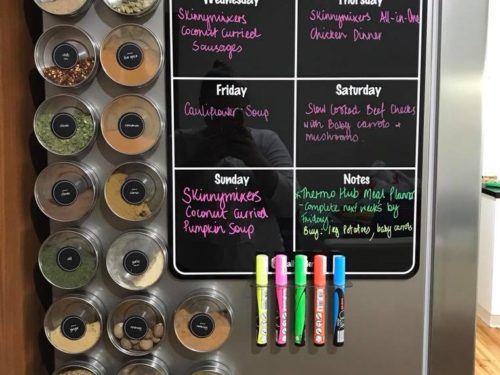 Wednesday
Skinnymixers
Coconut Curried
Sausages
Thursday
Skinnymixers All-in-One
Chicken Dinner
Friday
Cauliflower Soup
Saturday
Slow Cooked Beef Cheeks
with Baby carrots +
mushrooms.
Sunday
Skinnymixers
Coconut Curried
Pumpkin Soup
Notes
*Thermo Hub Meal Planner
-complete next week's by
Fridays.
Buy: potatoes, baby carrots